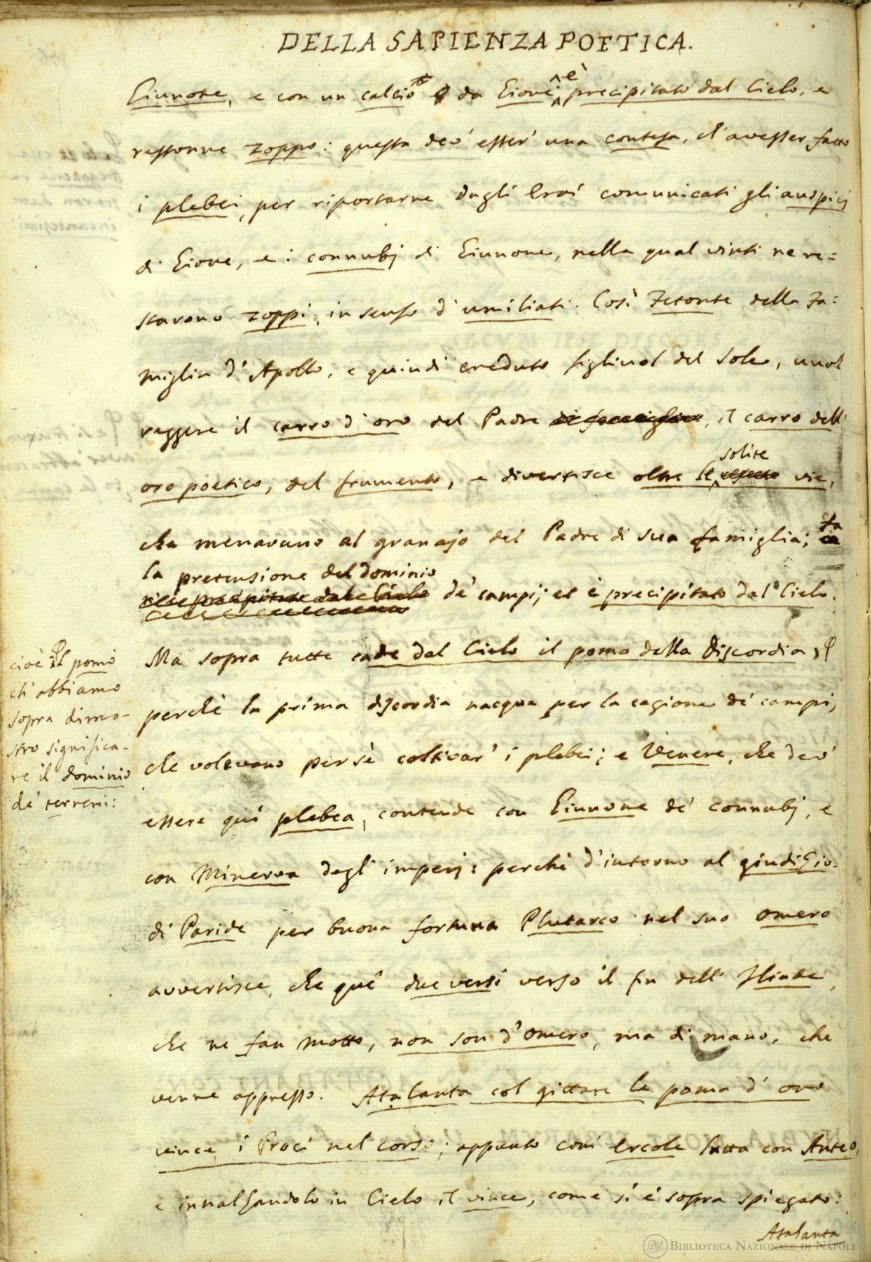 DELLA SAPIENZA POETICA.
Giunone, e con un calcio da Giove è precipitato dal Cielo, e
restonne zoppo: questa dev' esser' una contesa, ch'avesser fatto
i plebei, per riportarne dagli Eroi comunicati gli auspicj
di Giove, e i connubj di Giunone, nella qual vinti ne re=
starono zoppi, in senso d'umiliati. Così Fetonte della Fa=
miglia d'Apollo, e quindi creduto figliuol del Sole, vuol
reggere il carro d'oro del Padre, il carro dell'
oro poetico, del frumento, e divertisce oltre le solite vie,
che menavano al granajo del Padre di sua famiglia; fa
la pretensione del dominio de' campi; et è precipitato dal Cielo.
Ma sopra tutte cade dal Cielo il pomo della Discordia,
perchè la prima discordia nacque per la cagione de' campi,
che volevano per sè coltivar' i plebei; e Venere, che dev'
essere quì plebea, contende con Giunone de' connubj, e
con Minerva degl'imperj: perchè d'intorno al giudizio
di Paride per buona fortuna Plutarco nel suo Omero
avvertisce, che que' due versi verso il fin dell' Iliade,
che ne fan motto, non son d'Omero, ma di mano, che
venne appresso. Atalanta col gittare le poma d'oro
vince i Proci nel corso; appunto com' Ercole lutta con Anteo,
e innalzandolo in Cielo il vince, come si è sopra spiegato:
Atalanta
cioè il pomo
ch'abbiamo
sopra dimo-
stro significa-
re il dominio
de' terreni:
BIBLIOTECA NAZIONALE DI NAPOLI